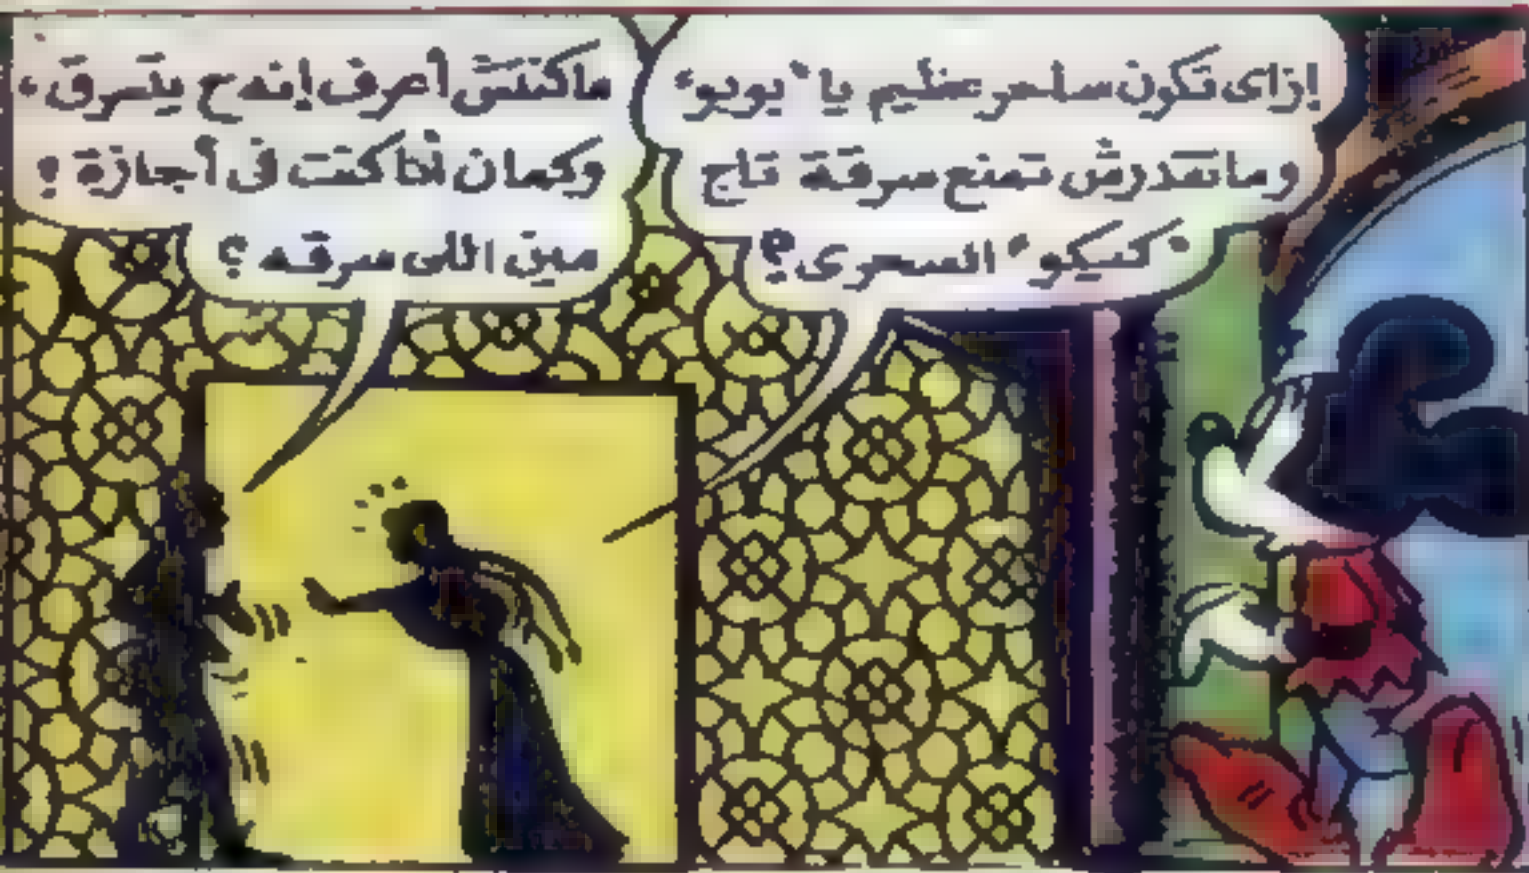 إزاى تكون ساحر عظيم يا "بوبو"
وماتقدرش تمنع سرقة تاج
"كيكو" السحرى؟
ماكنتش أعرف إنه ح يتسرق،
وكمان أنا كنت فى أجازة!
مين اللى سرقه؟